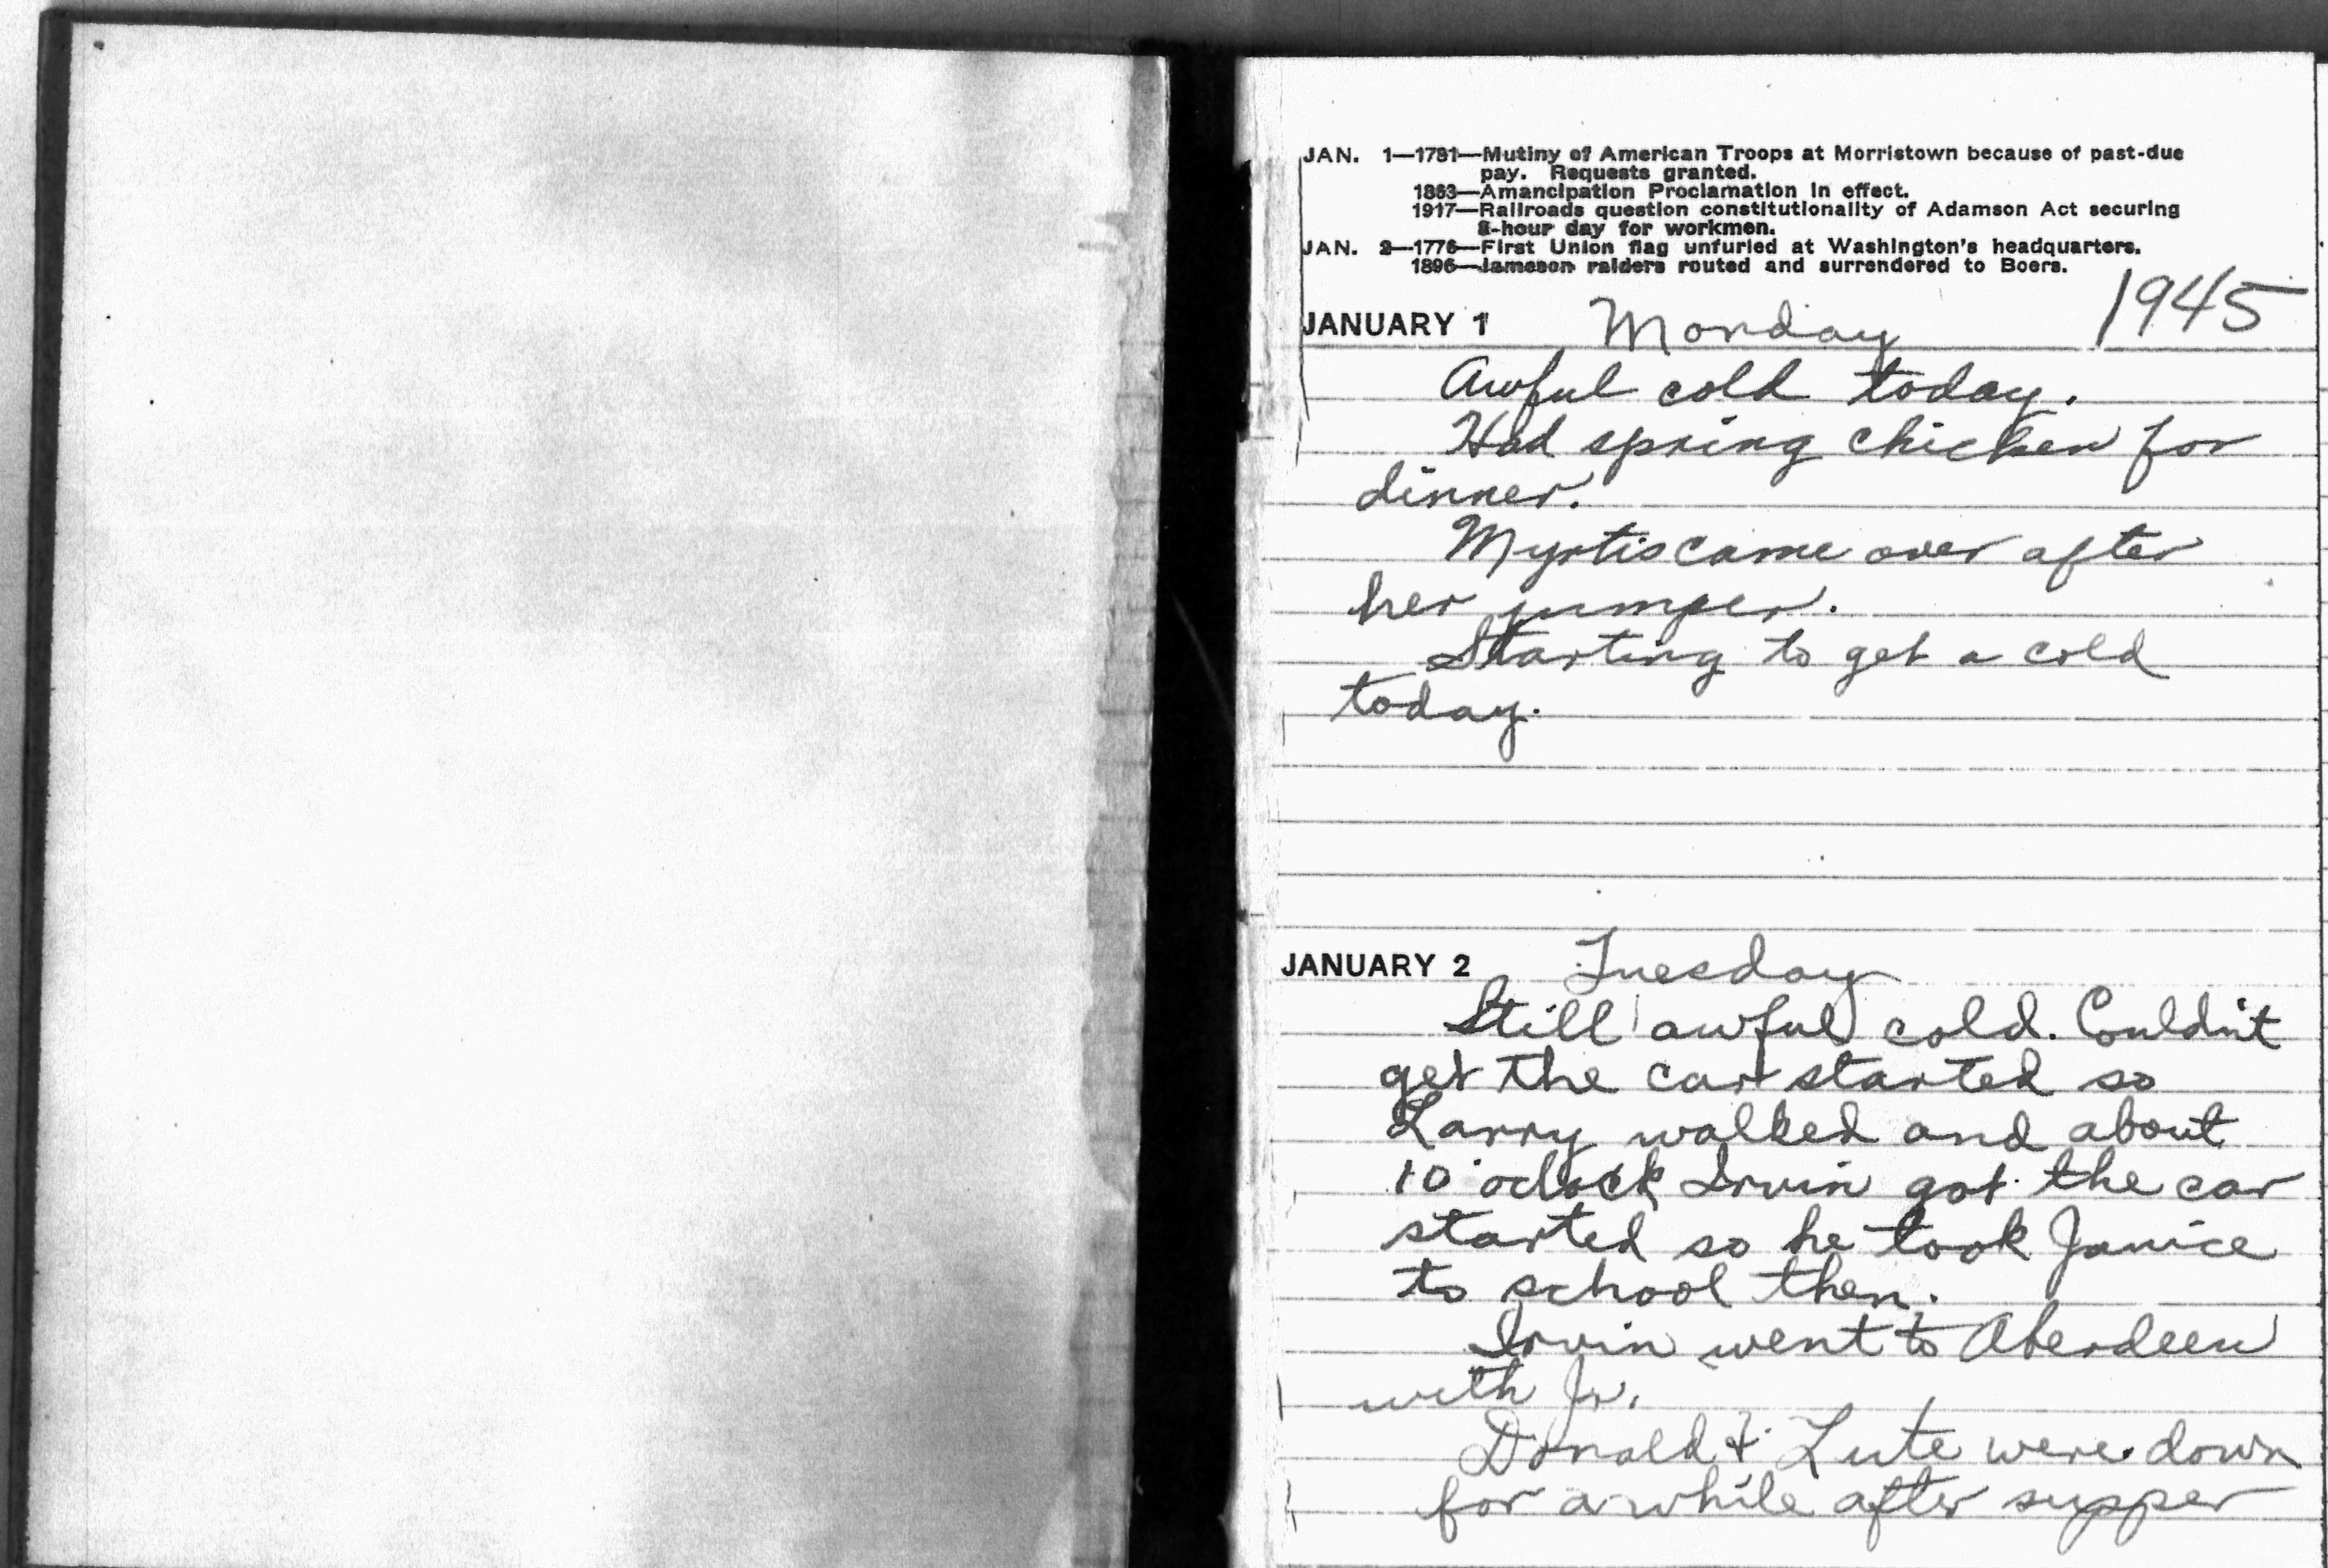 JAN. 1—1781—Mutiny of American Troops at Morristown because of past-due
pay. Requests granted.
1863—Amancipation Proclamation in effect.
1917—Railroads question constitutionality of Adamson Act securing
8-hour day for workmen.
JAN. 2—1776—First Union flag unfurled at Washington's headquarters.
1896—Jameson raiders routed and surrendered to Boers.
JANUARY 1 Monday 1945
Awful cold today.
Had spring chicken for
dinner.
Myrtis came over after
her jumper.
Starting to get a cold
today.
JANUARY 2 Tuesday
Still awful cold. Couldn't
get the car started so
Larry walked and about
10 o'clock Irvin got the car
started so he took Janice
to school then.
Irvin went to Aberdeen
with Jr.
Donald & Lute were down
for a while after supper